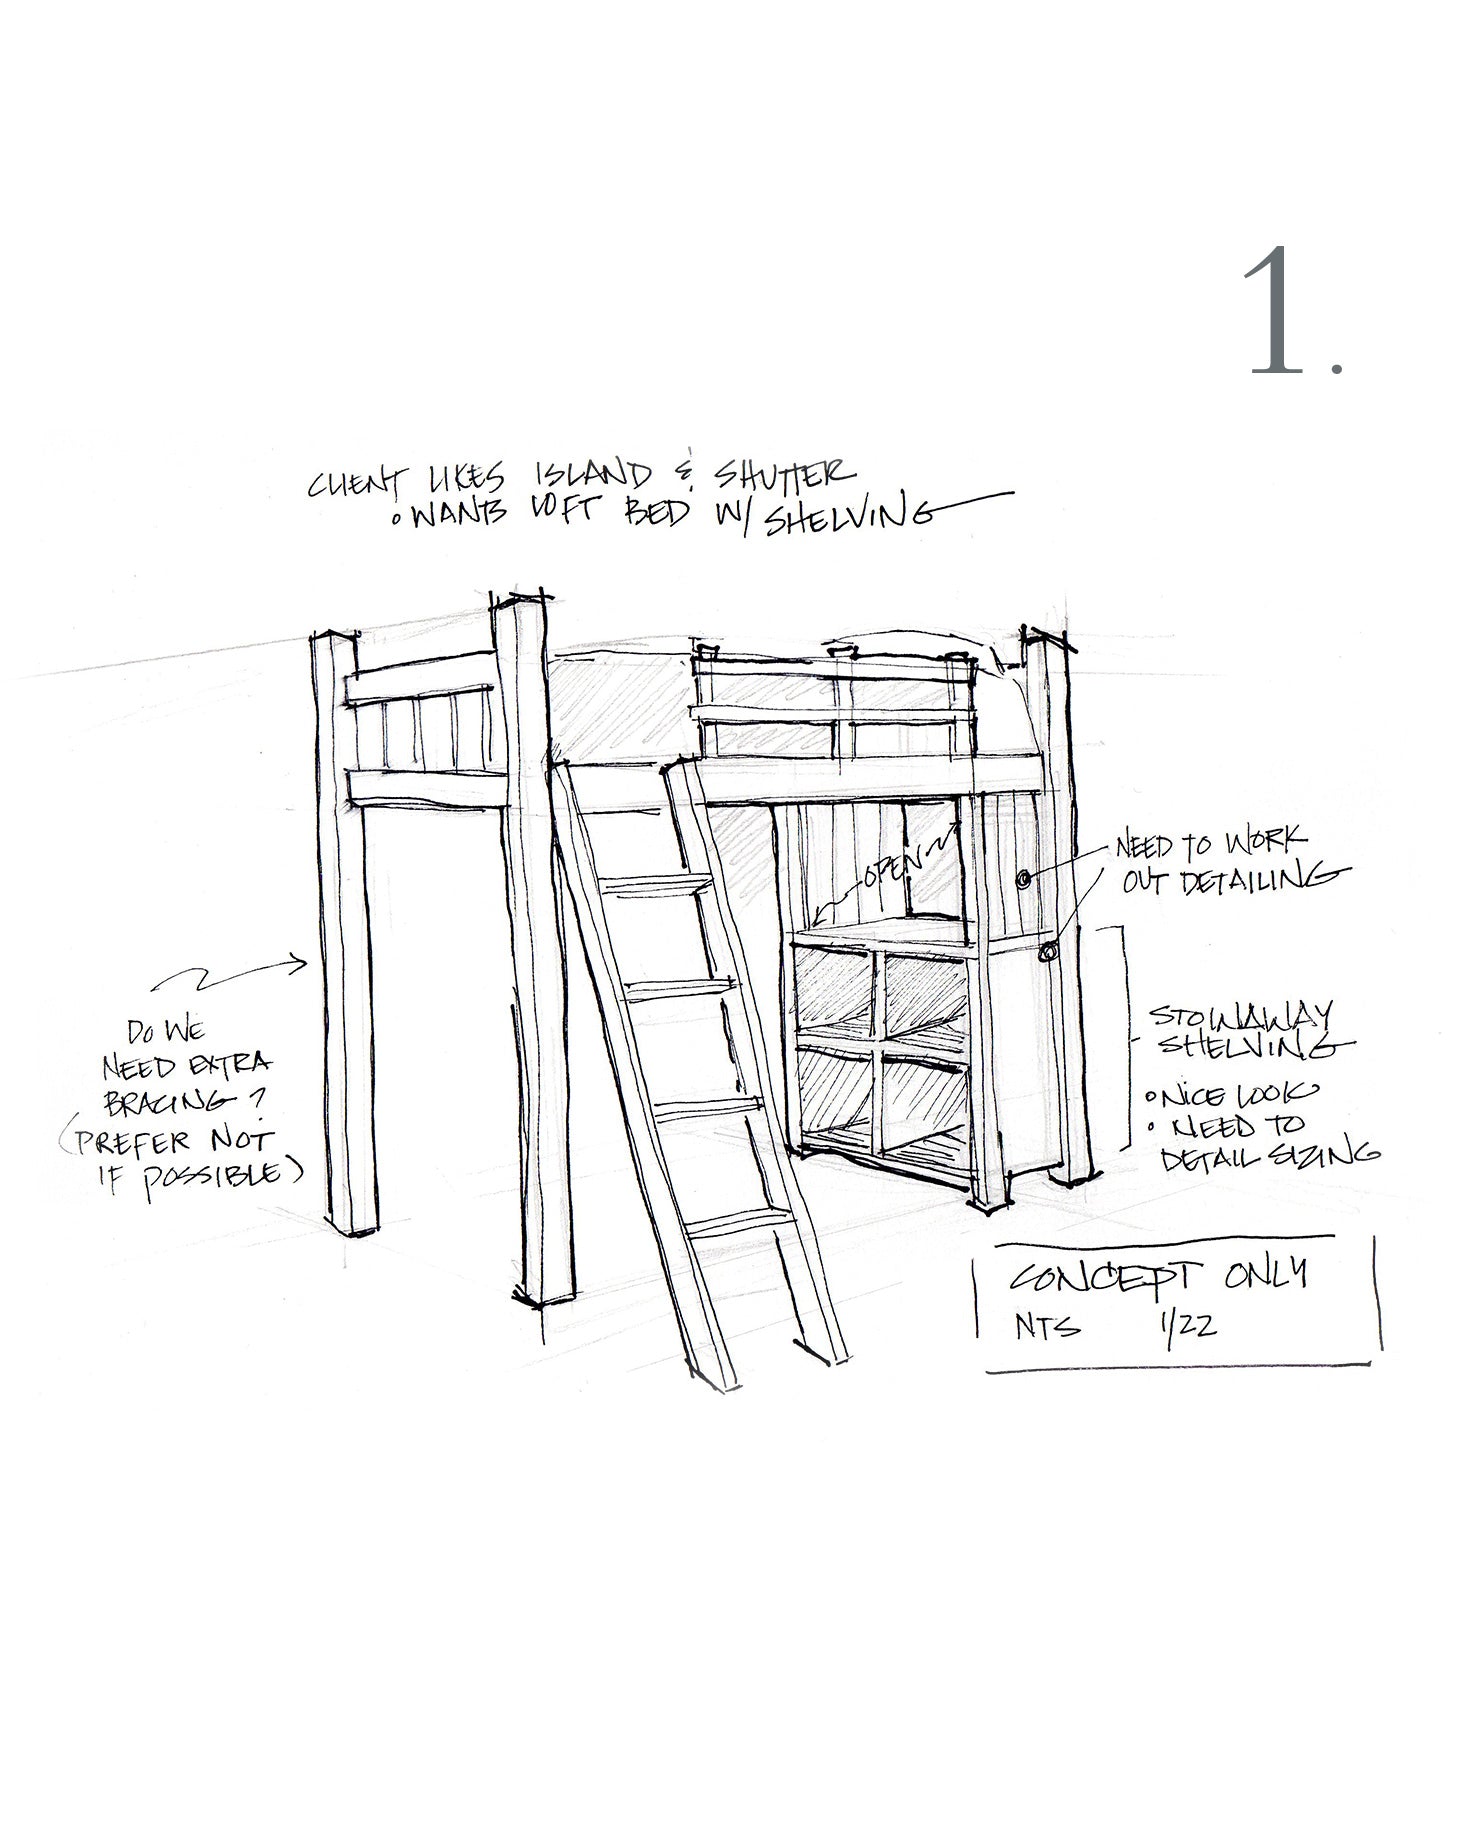 1.
CLIENT LIKES ISLAND & SHUTTER
• WANTS LOFT BED W/ SHELVING
OPEN
NEED TO WORK
OUT DETAILING
DO WE
NEED EXTRA
BRACING?
(PREFER NOT
IF POSSIBLE)
STOWAWAY
SHELVING
• NICE LOOK
• NEED TO
DETAIL SIZING
CONCEPT ONLY
NTS 1/22